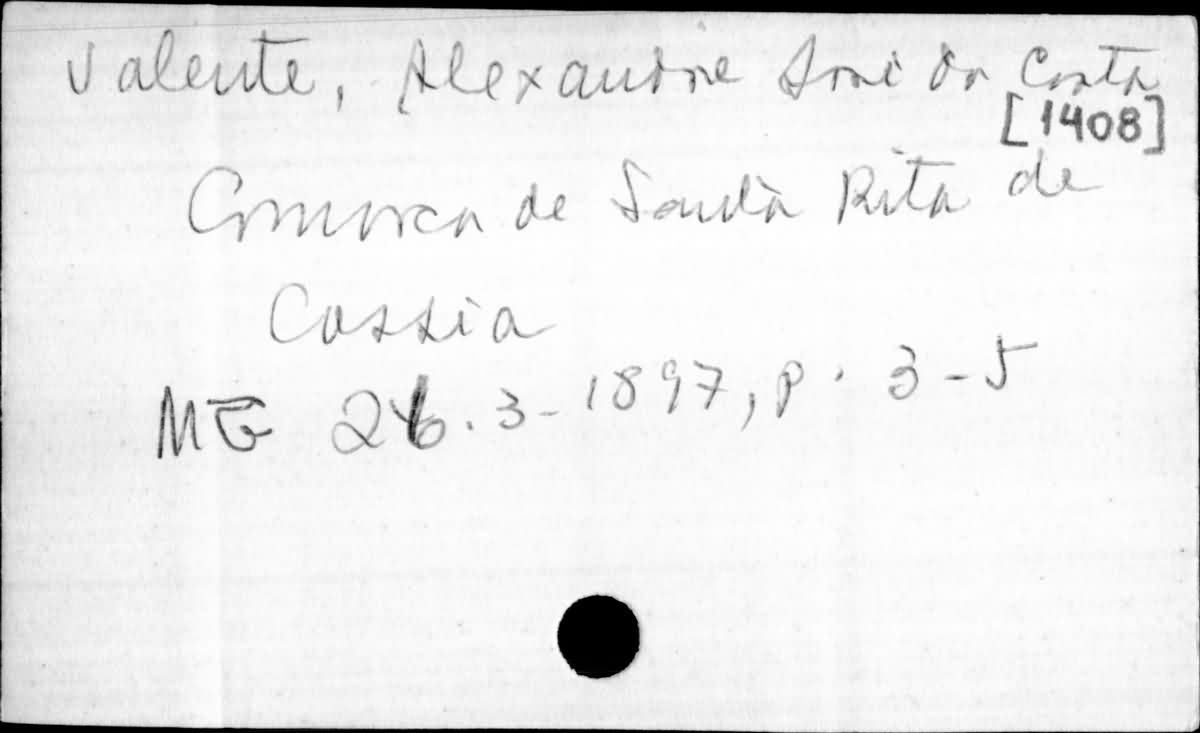 Valente, Alexandre José da Costa
[1408]
Comarca de Santa Rita de
Cassia
MG 26.3-1897, p. 3-5